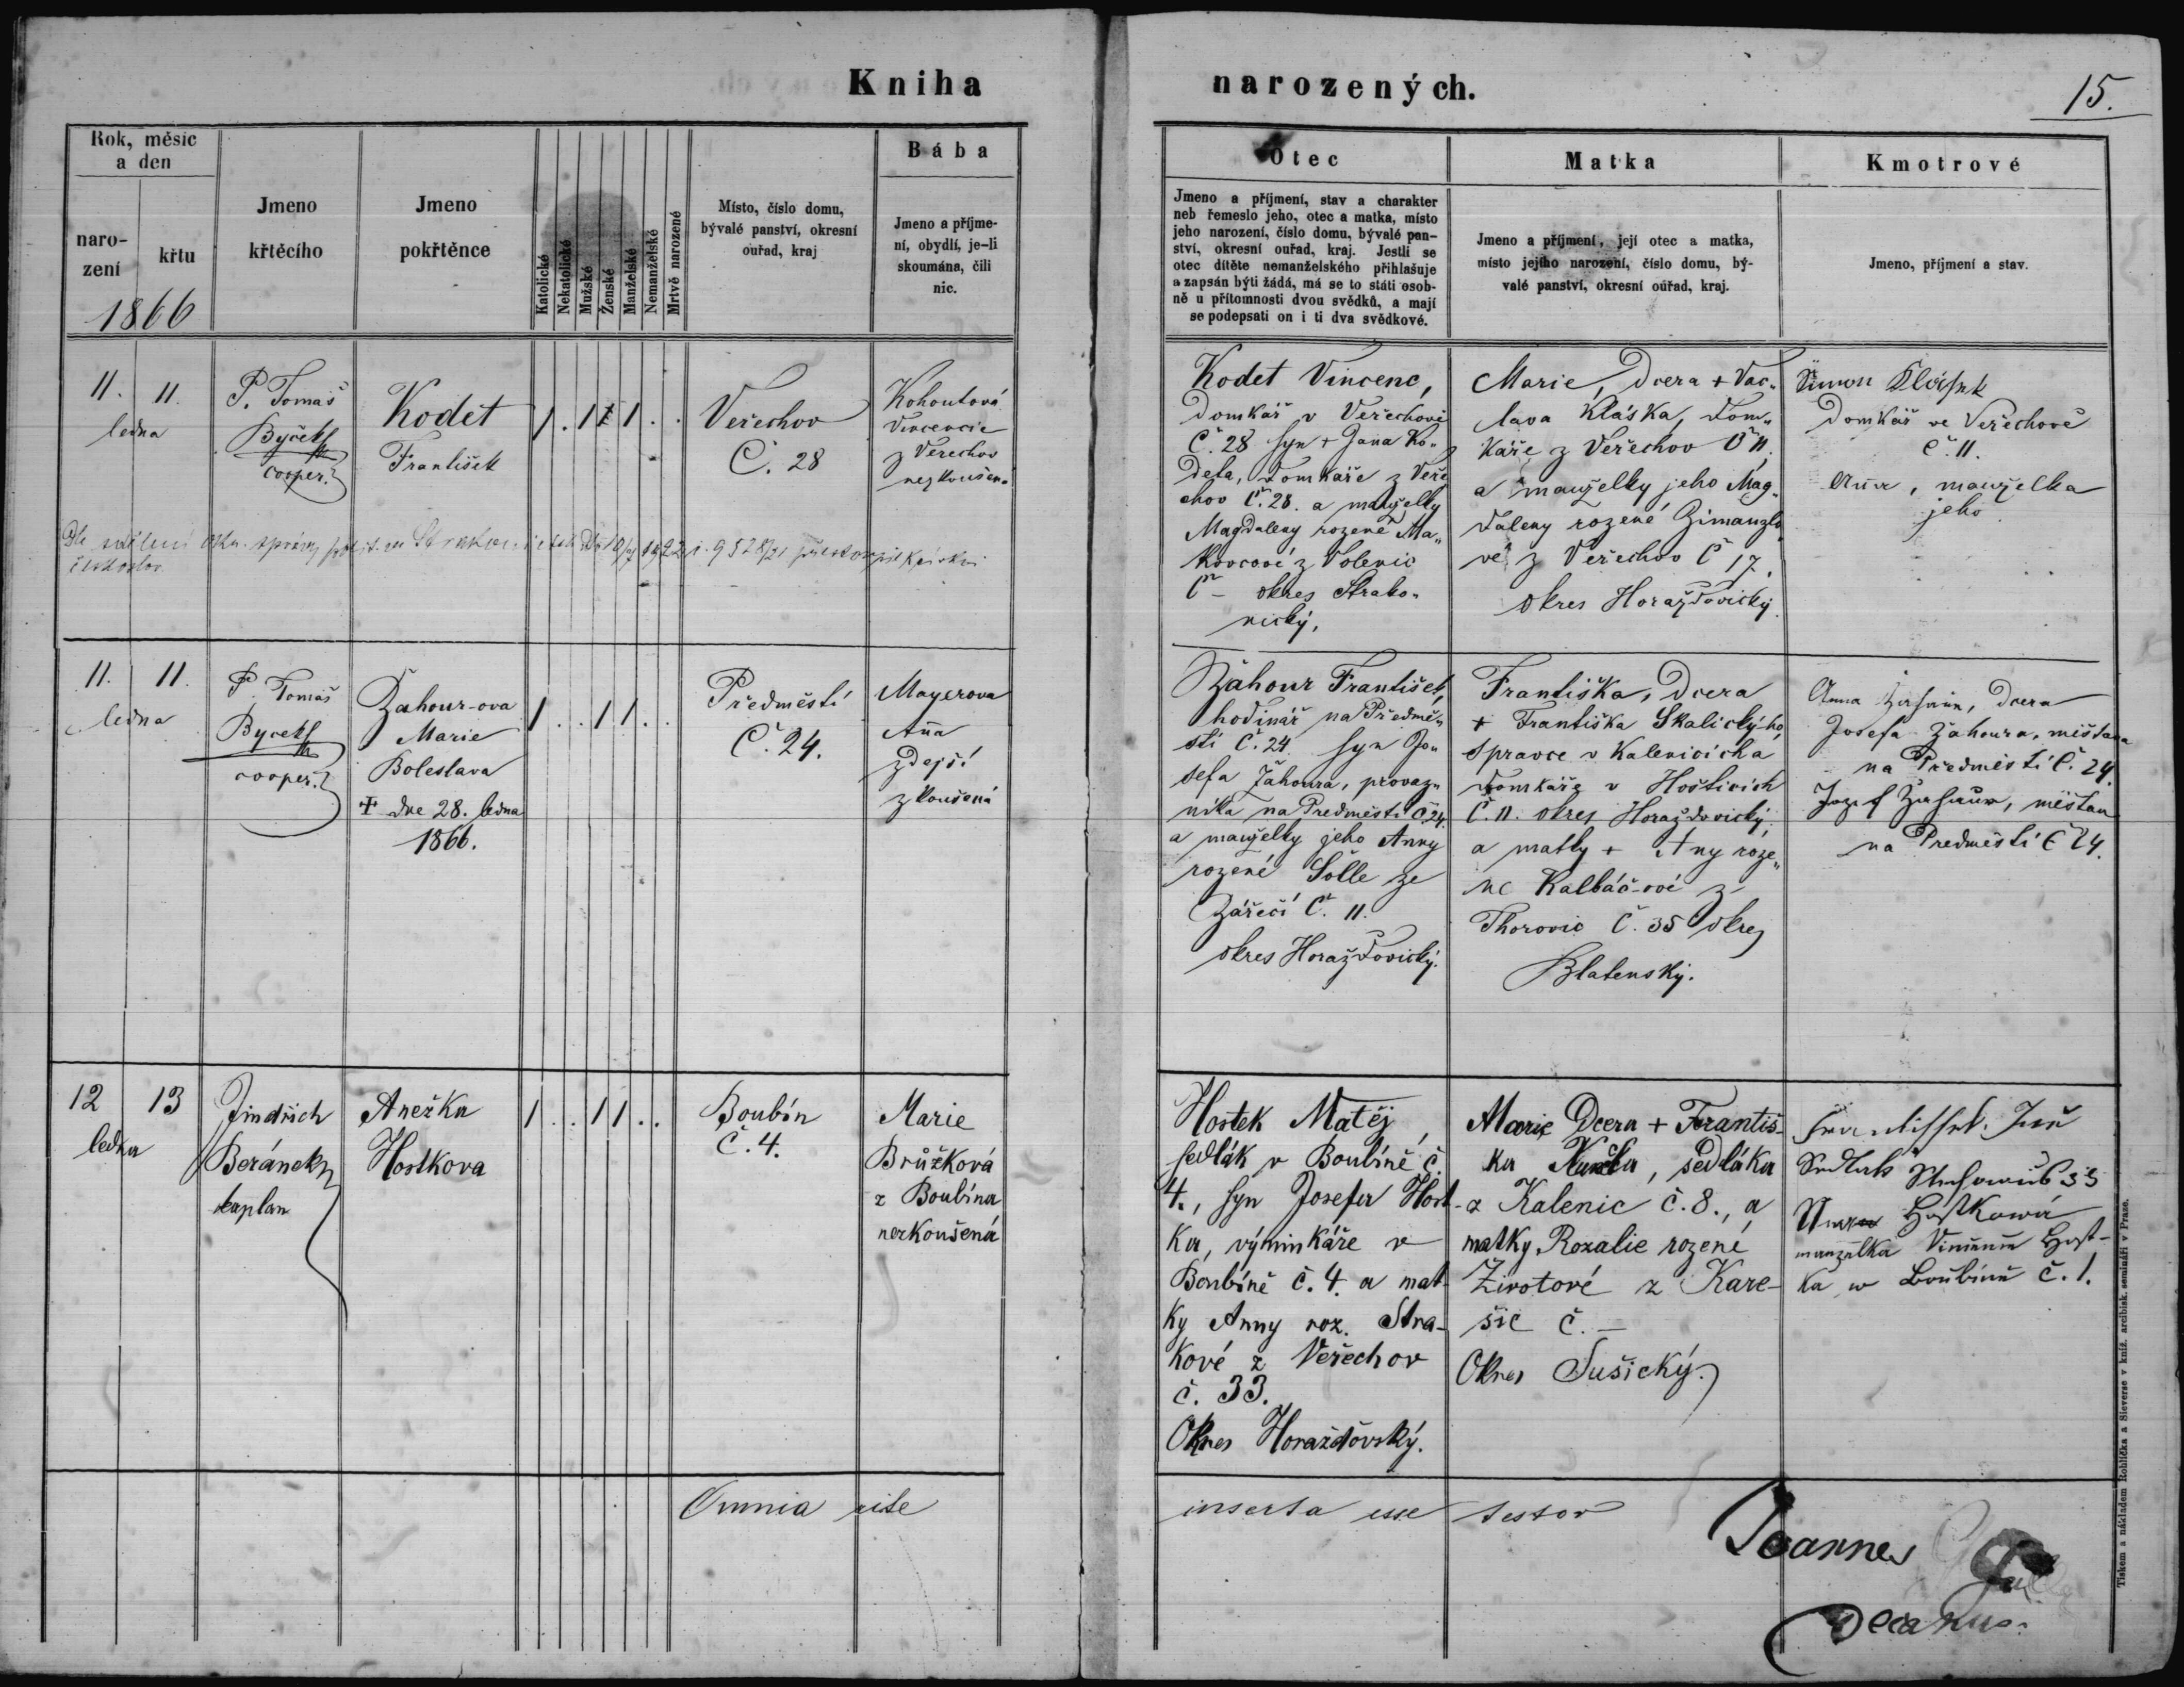 Kniha narozených.
15.
Rok, měsíc
a den
naro-
zení
křtu
1866
Jmeno
křtěcího
Jmeno
pokřtěnce
Katolické
Nekatolické
Mužské
Ženské
Manželské
Nemanželské
Mrtvě narozené
Místo, číslo domu,
bývalé panství, okresní
ouřad, kraj
Bába
Jmeno a příjme-
ní, obydlí, je-li
skoumána, čili
nic.
Otec
Jmeno a příjmení, stav a charakter
neb řemeslo jeho, otec a matka, místo
jeho narození, číslo domu, bývalé pan-
ství, okresní ouřad, kraj. Jestli se
otec dítěte nemanželského přihlašuje
a zapsán býti žádá, má se to státi osob-
ně u přítomnosti dvou svědků, a mají
se podepsati on i ti dva svědkové.
Matka
Jmeno a příjmení, její otec a matka,
místo jejího narození, číslo domu, bý-
valé panství, okresní ouřad, kraj.
Kmotrové
Jmeno, příjmení a stav.
11. 11.
ledna
P. Tomáš
Byček
cooper.
Kodet
František
1 . 1 1 . .
Veřechov
Č. 28
Kohoutová
Vincencie
z Veřechov
nezkoušená
Kodet Vincenc,
Domkář v Veřechově
Č. 28 syn + Jana Ko„
deta, Domkáře z Veře
chov Č. 28. a manželky
Magdaleny rozené Ma„
kovcové z Volenic
Č – okres Strako„
nický.
Marie, Dcera + Vac„
lava Kláska, Dom„
káře z Veřechov Č 11.
a manželky jeho Mag„
daleny rozené Zimanzlo
vé z Veřechov Č 17.
okres Horažďovický.
Šimon Klásek
Domkář ve Veřechově
č. 11.
Anna, manželka
jeho
Dle sdělení
1922 č. 9528/21
českoslov.
11. 11.
ledna
P. Tomáš
Byček
cooper.
Žahour-ova
Marie
Boleslava
+ dne 28. ledna
1866.
1 . . 1 1 . .
Předměstí
Č. 24.
Mayerova
Anna
zdejší
zkoušená
Žahour František,
hodinář na Předmě„
stí Č. 24 syn Jo„
sefa Žahoura, provaz„
níka na Předměstí Č. 24.
a manželky jeho Anny
rozené Šolle ze
Zářečí Č. 11.
okres Horažďovický.
Františka, Dcera
+ Františka Skalický-ho
správce v Kalenicích a
domkáře v Hošticích
Č. 11. okres Horažďovický,
a matky + Anny roze„
né Kalbáč-ové z
Thorovic Č. 35 okres
Blatenský.
Anna Žahour, dcera
Josefa Žahoura, měšťana
na Předměstí Č. 24.
Josef Žahour, měšťan
na Předměstí Č 24.
12 13
ledna
Jindřich
Beránek
kaplan
Anežka
Hostkova
1 . . 1 1 . .
Boubín
č. 4.
Marie
Brůžková
z Boubína
nezkoušená
Hostek Matěj,
sedlák v Boubíně č.
4., syn Josefa Host-
ka, výminkáře v
Boubíně č. 4. a mat-
ky Anny roz. Stra-
kové z Veřechov
č. 33.
Okres Horažďovský.
Marie Dcera + Františ-
ka, sedláka
z Kalenic č. 8., a
matky Rozalie rozené
Životové z Kare-
šic č. –
Okres Sušický.
František
Sedlák
33
Hostkowá
manzelka Host-
ka w Boubíně č. 1.
Omnia rite inserta esse testor
Joannes
Decanus.
Tiskem a nákladem Rohlíčka a Sieverse v kníž. arcibisk. semináři v Praze.